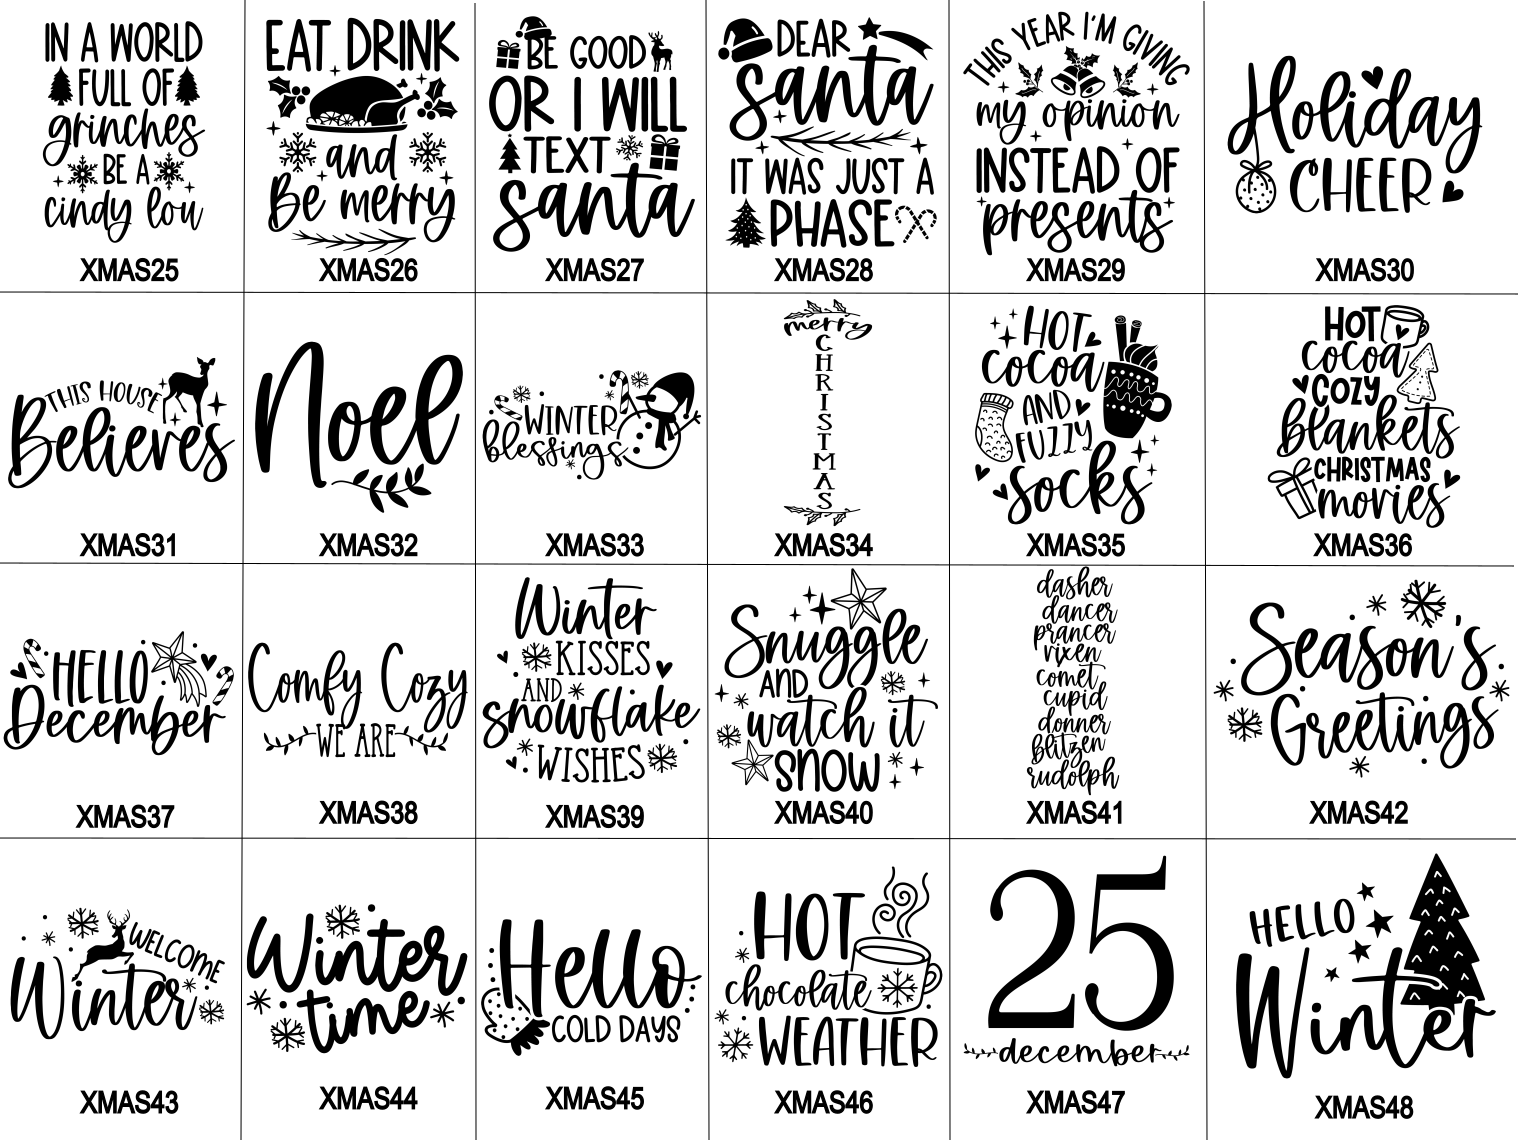 IN A WORLD
FULL OF
grinches
BE A
cindy lou
XMAS25
EAT DRINK
and
Be merry
XMAS26
BE GOOD
OR I WILL
TEXT
santa
XMAS27
DEAR
santa
IT WAS JUST A
PHASE
XMAS28
THIS YEAR I'M GIVING
my opinion
INSTEAD OF
presents
XMAS29
Holiday
CHEER
XMAS30
THIS HOUSE
Believes
XMAS31
Noel
XMAS32
WINTER
blessings
XMAS33
merry
C
H
R
I
S
T
M
A
S
XMAS34
HOT
cocoa
AND
FUZZY
socks
XMAS35
HOT
cocoa
COZY
blankets
CHRISTMAS
movies
XMAS36
HELLO
December
XMAS37
Comfy Cozy
WE ARE
XMAS38
Winter
KISSES
AND
snowflake
WISHES
XMAS39
Snuggle
AND
watch it
SNOW
XMAS40
dasher
dancer
prancer
vixen
comet
cupid
donner
blitzen
rudolph
XMAS41
Season's
Greetings
XMAS42
WELCOME
Winter
XMAS43
Winter
time
XMAS44
Hello
COLD DAYS
XMAS45
HOT
chocolate
WEATHER
XMAS46
25
december
XMAS47
HELLO
Winter
XMAS48